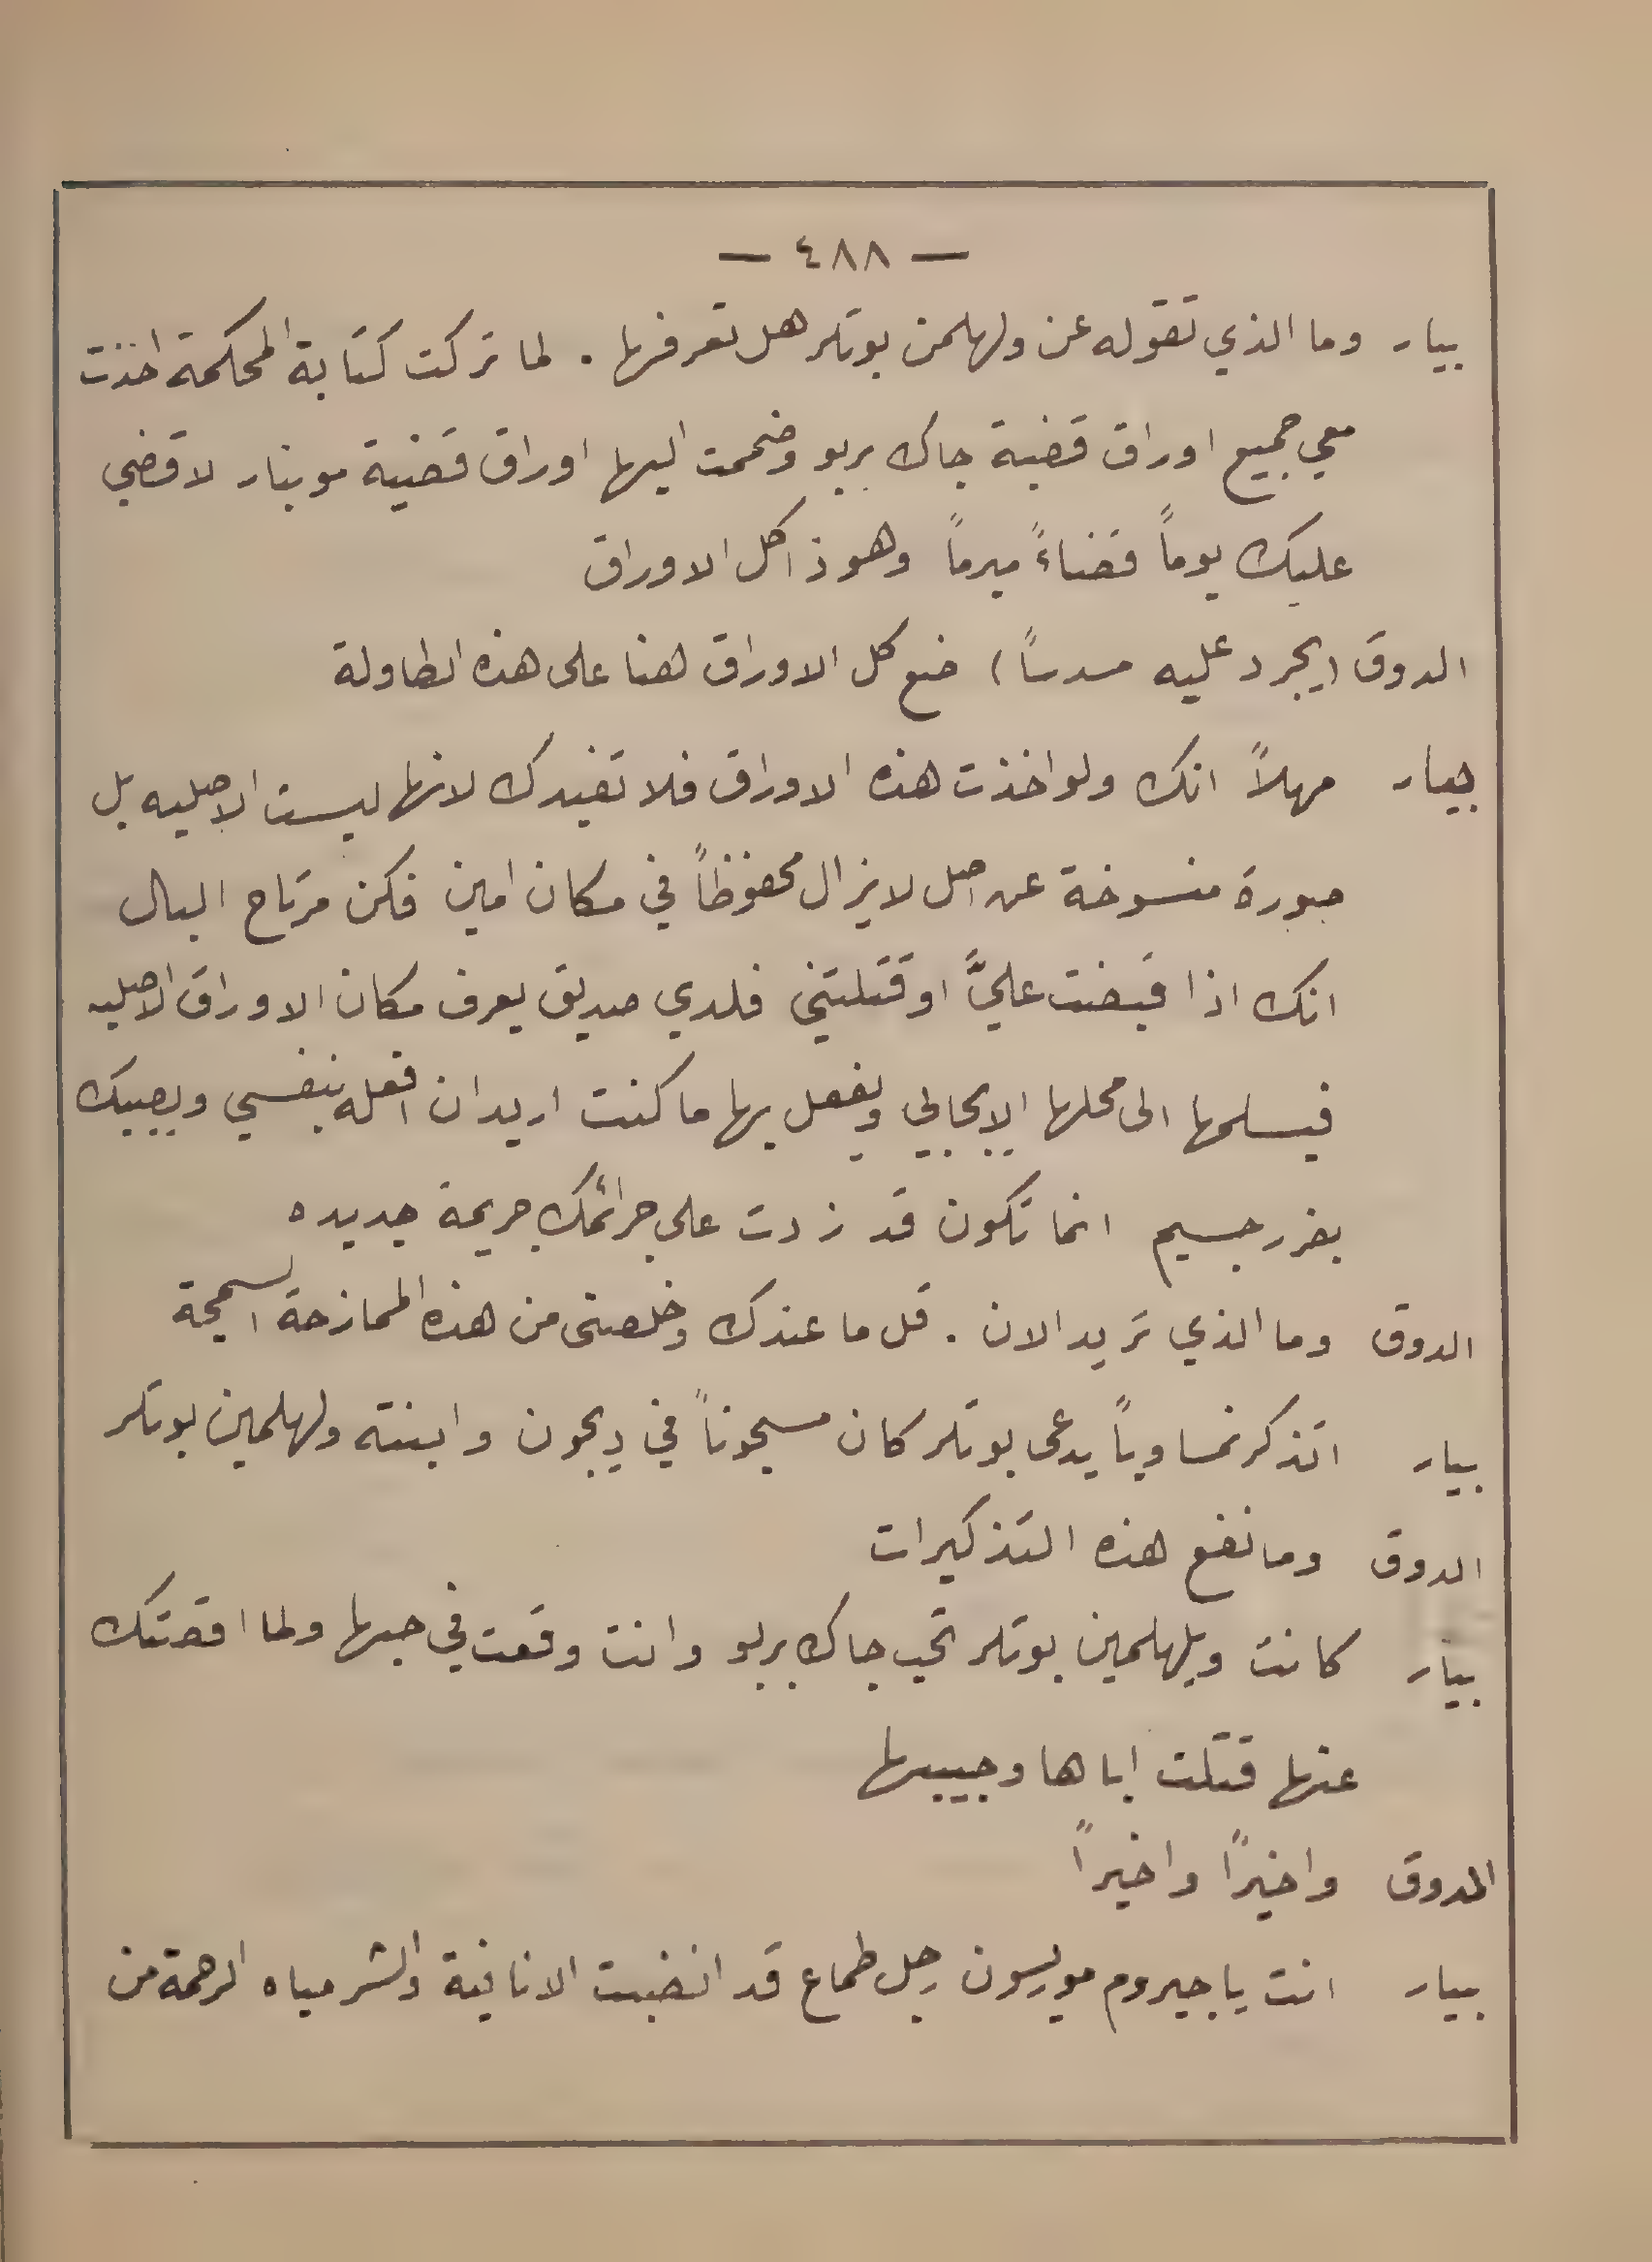 — ٤٨٨ —
بيار وما الذي تقوله عن ولهلمن بوتلر هل تعرفها . لما تركت كتابة المحكمة اخذت
معي جميع اوراق قضية جاك بربو وضممت اليها اوراق قضية موينار لاقضي
عليك يوماً قضاءً مبرماً وهوذا كل الاوراق
الدوق (يجرد عليه مسدساً) ضع كل الاوراق هنا على هذه الطاولة
بيار مهلاً انك ولو اخذت هذه الاوراق فلا تفيدك لانها ليست الاصليه بل
صورة منسوخة عن اصل لا يزال محفوظاً في مكان امين فكن مرتاح البال
انك اذا قبضت عليَّ او قتلتني فلدي صديق يعرف مكان الاوراق الاصليه
فيسلمها الى محلها الايجابي ويفعل بها ما كنت اريد ان افعله بنفسي ويصيبك
بضرر جسيم انما تكون قد زدت على جرائمك جريمة جديده
الدوق وما الذي تريد الان . قل ما عندك وخلصنى من هذه الممازحة السمجة
بيار اتذكر نمساوياً يدعى بوتلر كان مسجوناً في ديجون وابنته ولهلمين بوتلر
الدوق وما نفع هذه التذكيرات
بيار كانت ويلهلمين بوتلر تحب جاك بربو وانت وقعت في حبها ولما اقصتك
عنها قتلت اباها وحبيبها
الدوق واخيراً واخيراً
بيار انت يا جيروم موريسون رجل طماع قد انضبت الانانية والشر مياه الرحمة من